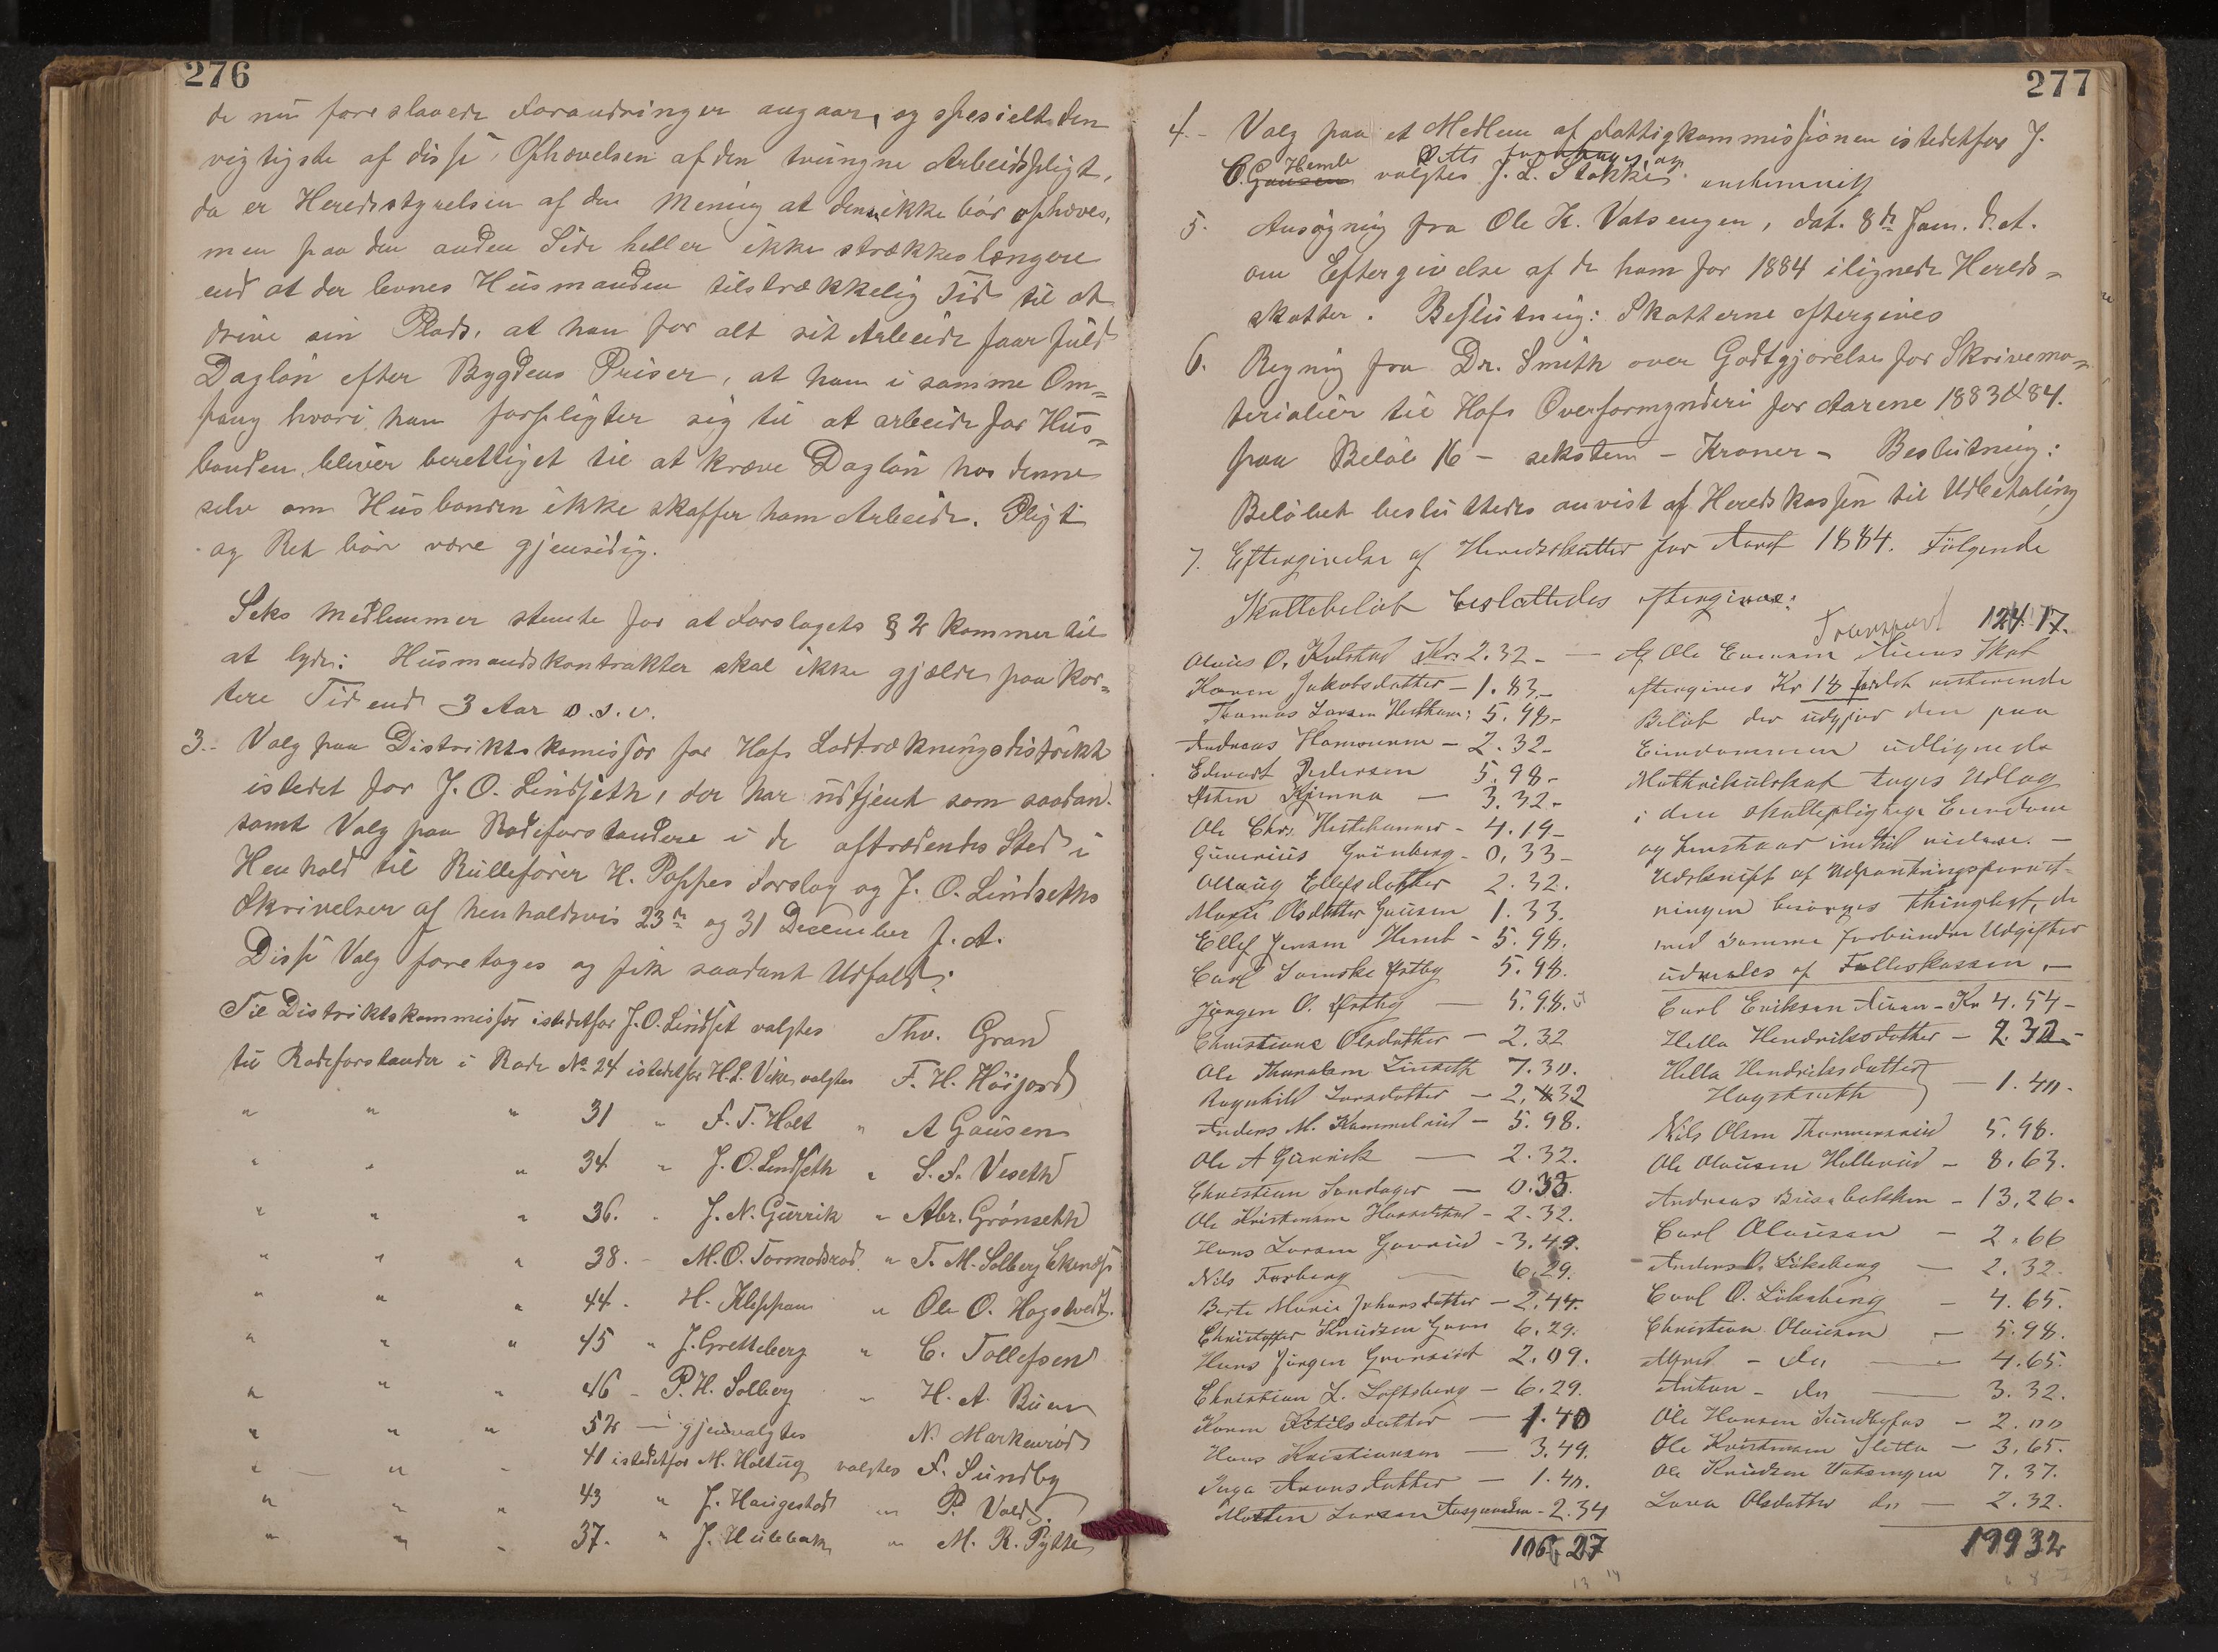 276
de nu foreslaaede Forandringer angaar, og spesielt den
vigtigste af disse, Ophævelsen af den tvungne Arbeidspligt,
da er Heredsstyrelsen af den Mening at den ikke bør ophæves,
men paa den anden Side heller ikke strækkes længere
end at der levnes Husmanden tilstrækkelig Tid til at
drive sin Plads, at han for alt sit Arbeide faar fuld
Dagløn efter Bygdens Priser, at han i samme Om=
fang hvori han forpligter sig til at arbeide for Hus=
bonden bliver berettiget til at kræve Dagløn hos denne
selv om Husbonden ikke skaffer ham Arbeide. Pligt
og Ret bør være gjensidig.
Seks Medlemmer stemte for at Forslagets § 2 kommer til
at lyde: Husmandskontrakter skal ikke gjælde paa kor=
tere Tid end 3 Aar o.s.v.
3.- Valg paa Distriktskomissør for Hofs Lodtrækningsdistrikt
istedet for J. O. Lindseth, der har udtjent som saadan.
samt Valg paa Rodeforstandere i de aftrædendes Sted i
Henhold til Rullefører H. Poppes Forslag og J. O. Lindseths
Skrivelser af henholdsvis 23de og 31 December f. A.
Disse Valg foretoges og fik saadant Udfald:
Til Distriktskommissør istedetfor J. O. Lindset valgtes Thv. Gran
til Rodeforstander i Rode No 24 istedetfor H. L. Vike valgtes F. H. Høijord
" " " 31 " F. T. Holt " A Gausen
" " " 34 " J. O. Lindseth " S. A. Veseth
" " " 36. " J. N. Gurrik " Abr. Grønseth
" " " 38. - M. O. Tormodsrod " T. M. Solberg Ekenæs
" " " 44 - H. Kleppan " Ole O. Hogstvedt.
" " " 45 " J. Gretteberg " C. Tollefsen
" " " 46 - P. H. Solberg " H. A. Buer
" " " 52 - gjenvalgtes N. Markerød
" " " 41 istedetfor M. Holtug valgtes F. Sundby
" " " 43 " J. Haugestad " P. Vold.
" " " 37. " J. Hulebak " M. R. Pytte
277
4.- Valg paa et Medlem af Fattigkommissionen istedetfor J.
C. Gausen Hemb valgtes J. L. Stokke enstemmig
5. Ansøgning fra Ole H. Vatsengen, dat. 8de Jan. d. A.
om Eftergivelse af de ham for 1884 ilignede Hereds=
skatter. Beslutning: Skatterne eftergives
6. Regning fra Dr. Smith over Godtgjørelse for Skrivema=
terialier til Hofs Overformynderi for Aarene 1883 & 84.
paa Beløb 16 - seksten - Kroner - Beslutning:
Beløbet besluttedes anvist af Heredskassen til Udbetaling
7. Eftergivelse af Heredsskatter for Aaret 1884. Følgende
Skattebeløb besluttedes eftergivne:
Olaus O. Kulstad Kr. 2.32 -
Karen Jakobsdatter - 1.83 -
Thomas Larsen 5.98 -
Andreas - 2.32 -
Edvart Pedersen 5.98 -
- 3.32 -
Ole Chr. - 4.19 -
Gunerius Grünberg - 0,33 -
Ellefsdatter 2.32.
Marie Olsdatter Gausen 1.33.
Ellef Jensen Hemb - 5.98.
Carl Svinske Østby 5.98.
Jørgen O. Østby - 5.98.
Christiane Olsdatter - 2.32
Ole Linseth 7.30.
Ragnhild Larsdatter - 2.32
Anders M. - 5.98.
Ole A Gurrik - 2.32.
Christian - 0.33.
Ole Kristensen - 2.32.
Hans Larsen - 3.49.
Nils Forberg - 6.29.
Berte Marie Johansdatter - 2.44.
Christoffer Knudsen 6.29.
Hans Jørgen 2.09.
Christian L. - 6.29.
Karen Ketilsdatter - 1.40
Hans Kristiansen - 3.49.
Inga - 1.40.
Morten Larsen - 2.34
106,27
Transport 124.17.
Af Ole Evensen Skat
eftergives Kr 18 det resterende
Beløb der udgjør den paa
Eiendommen udlignede
Matrikulskat tages Udlæg
i den skattepligtige Eiendom
og henstaar indtil videre. -
Udskrift af Udpantningsforret-
ningen besørges thinglæst, de
med samme forbundne Udgifter
udredes af Fælleskassen. -
Carl Eriksen - Kr 4.54 -
Hella Hendriksdatter - 2.32 -
Hella Hendriksdatter
- 1.40.
Nils Olsen 5.98.
Ole Olausen Hellerud - 8.63.
Andreas - 13,26.
Carl Olausen - 2.66
Anders O. Løkeberg - 2.32.
Carl O. Løkeberg - 4.65.
Christian Olausen - 5.98.
Alfred - do - 4.65.
Anton - do - 3.32.
Ole Hansen Sundbyfos - 2.00
Ole Kristensen Sletta - 3.65.
Ole Knudsen Vatsengen 7.37.
Lava Olsdatter do - 2.32.
199 32